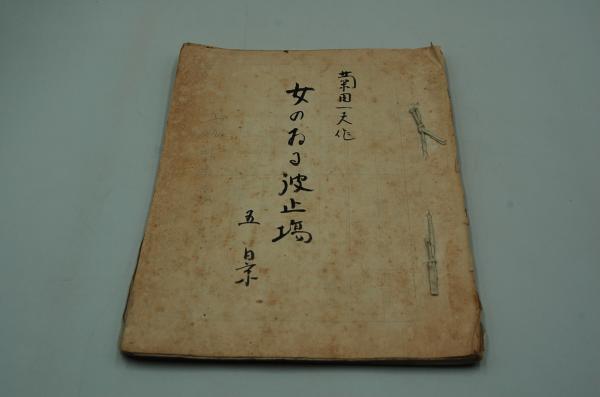 菊田一夫作
女のゐる波止場
五景